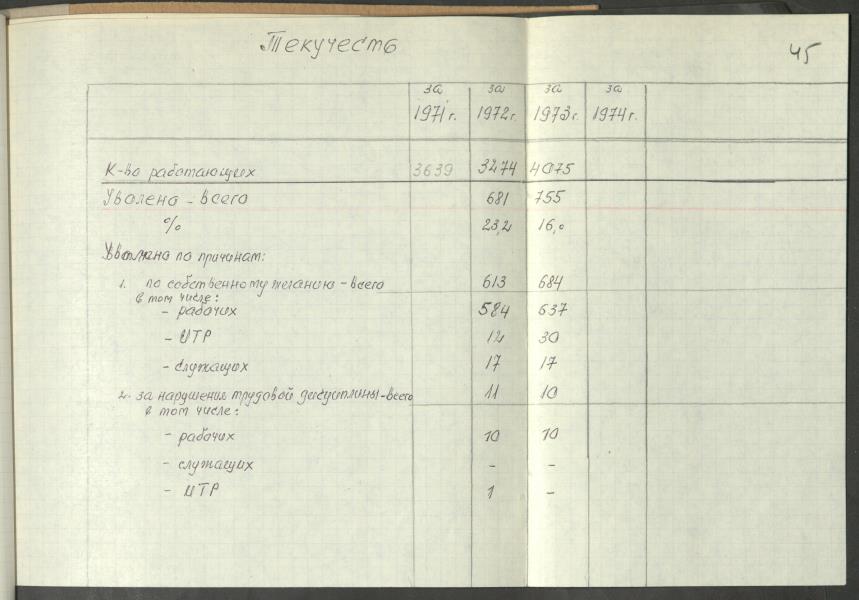 Текучесть
45
за за за за
1971г. 1972г. 1973г. 1974г.
К-во работающих 3639 3274 4075
Уволено - всего 681 755
% 23,2 16,0
Уволено по причинам:
1. по собственному желанию - всего 613 684
в том числе:
- рабочих 584 637
- ИТР 12 30
- служащих 17 17
2. за нарушения трудовой дисциплины - всего 11 10
в том числе:
- рабочих 10 10
- служащих - -
- ИТР 1 -